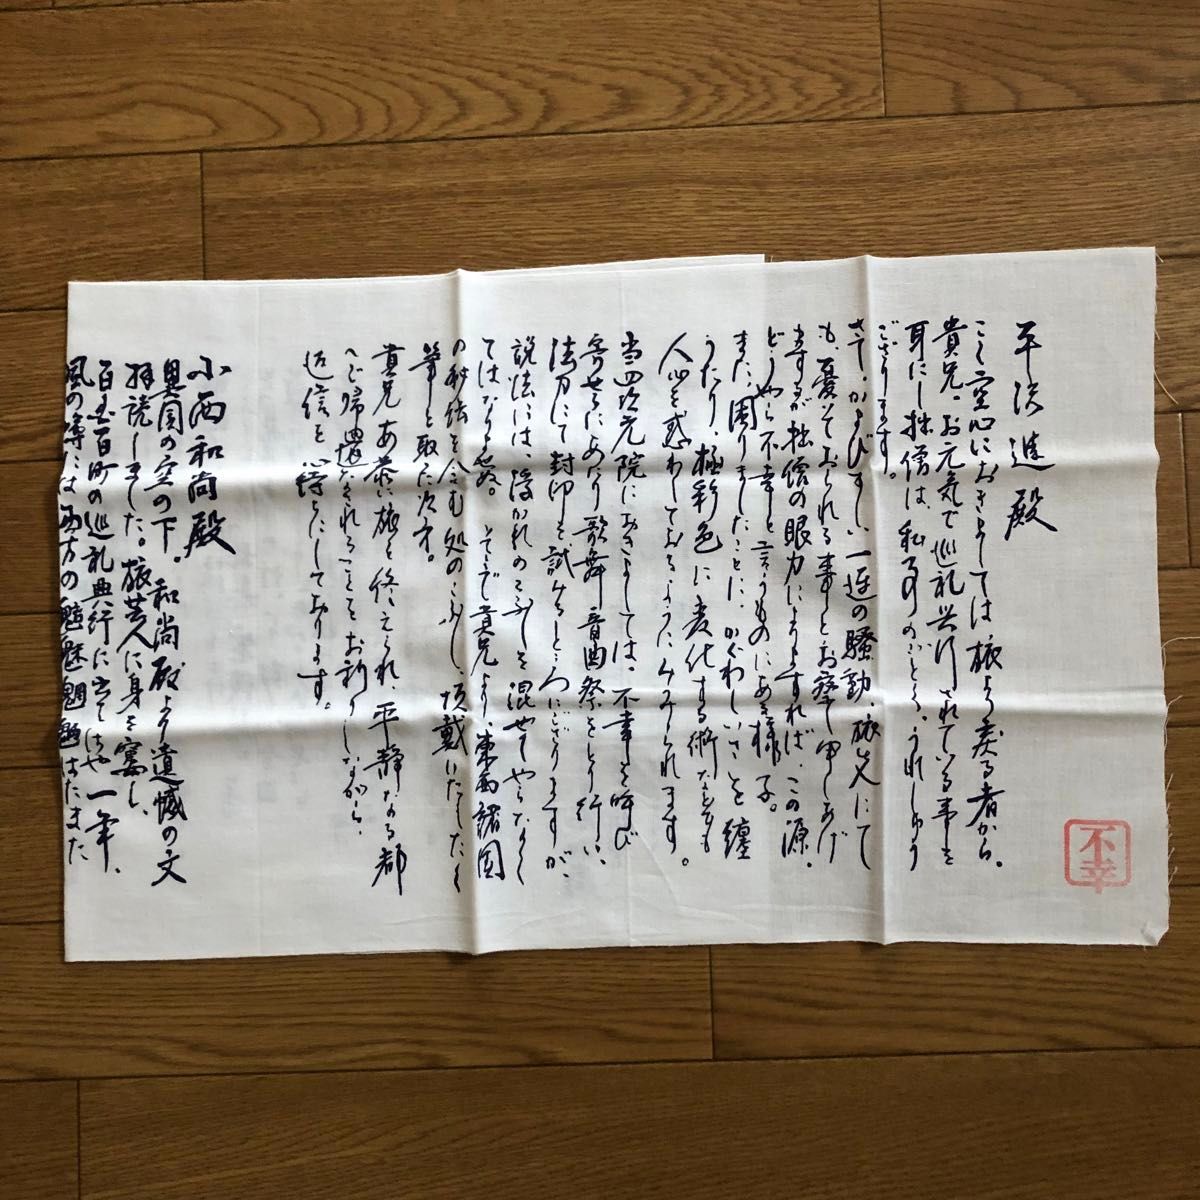 平沢進殿
ここ空心におきましては旅より戻る者から。
貴兄。お元気で巡礼興行されている事を
耳にし拙僧は、私事のごとく。うれしゅう
ございます。
さて、かまびすしい一連の騒動、旅災にて
も、憂いておられる事とお察し申しあげ
ますが拙僧の眼力によりますれば、この源。
どうやら不幸と言うものにある様子。
また、困りましたことに、かぐわしいさまを纏
うたり、極彩色に変化する術などをも
人心を惑わしておるようにみうけられます。
当四次元院におきましては、不幸を呼び
寄せるにあたり歌舞音曲祭をとり行い、
法力にて封印を試みるところにござりますが、
説法には、浮かれのこぶしを混せてやらなく
てはなりませぬ。そこで貴兄より、東西諸国
の秘伝を含む処のこぶし、頂戴いたしたく
筆を取った次第。
貴兄お恭に旅を終えられ、平静なる都
へご帰還なされることをお祈りしながら、
返信を心待ちにしております。
小西和尚殿
異国の空の下。和尚殿より遺憾の文
拝読しました。旅芸人に身を窶し、
百五百町の巡礼興行に出てはや一年、
風の噂には西方の魑魅魍魎はたまた
不幸